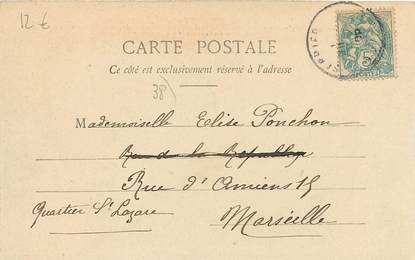 12 €
CARTE POSTALE
Ce côté est exclusivement réservé à l'adresse
38)
Mademoiselle Elise Ponchon
Rue de la République
Rue d'Amiens 15
Quartier St Lazare
Marseille
POSTES